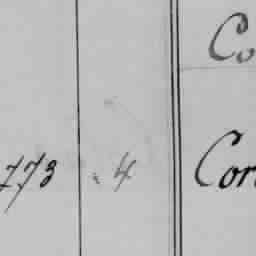 Co
773 . 4 Cor